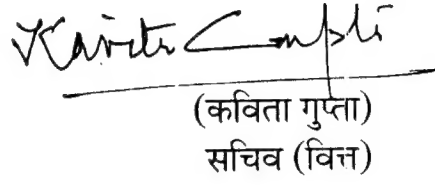 Kavita Gupta
(कविता गुप्ता)
सचिव (वित्त)